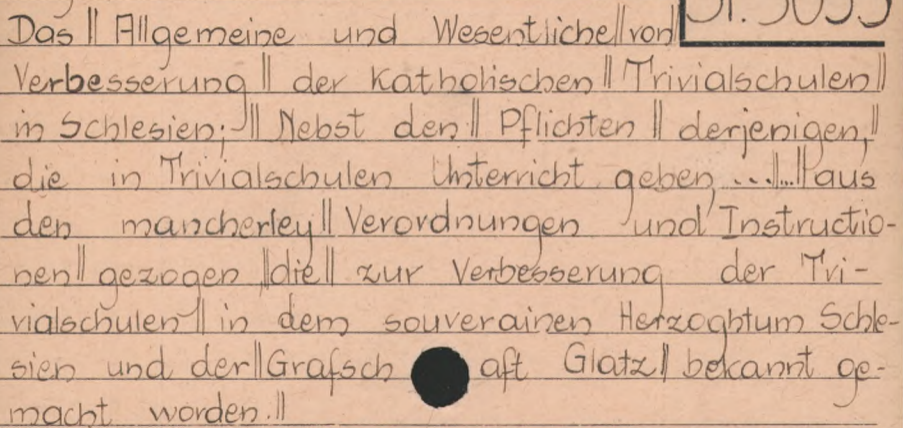 St. 5055
Das || Allgemeine und Wesentliche || von ||
Verbesserung || der Katholischen || Trivialschulen ||
in Schlesien; || Nebst den || Pflichten || derjenigen, ||
die in Trivialschulen Unterricht geben ...||...|| aus
den mancherley || Verordnungen und Instructio-
nen || gezogen || die || zur Verbesserung der Tri-
vialschulen || in dem souverainen Herzoghtum Schle-
sien und der || Grafschaft Glatz || bekannt ge-
macht worden. ||